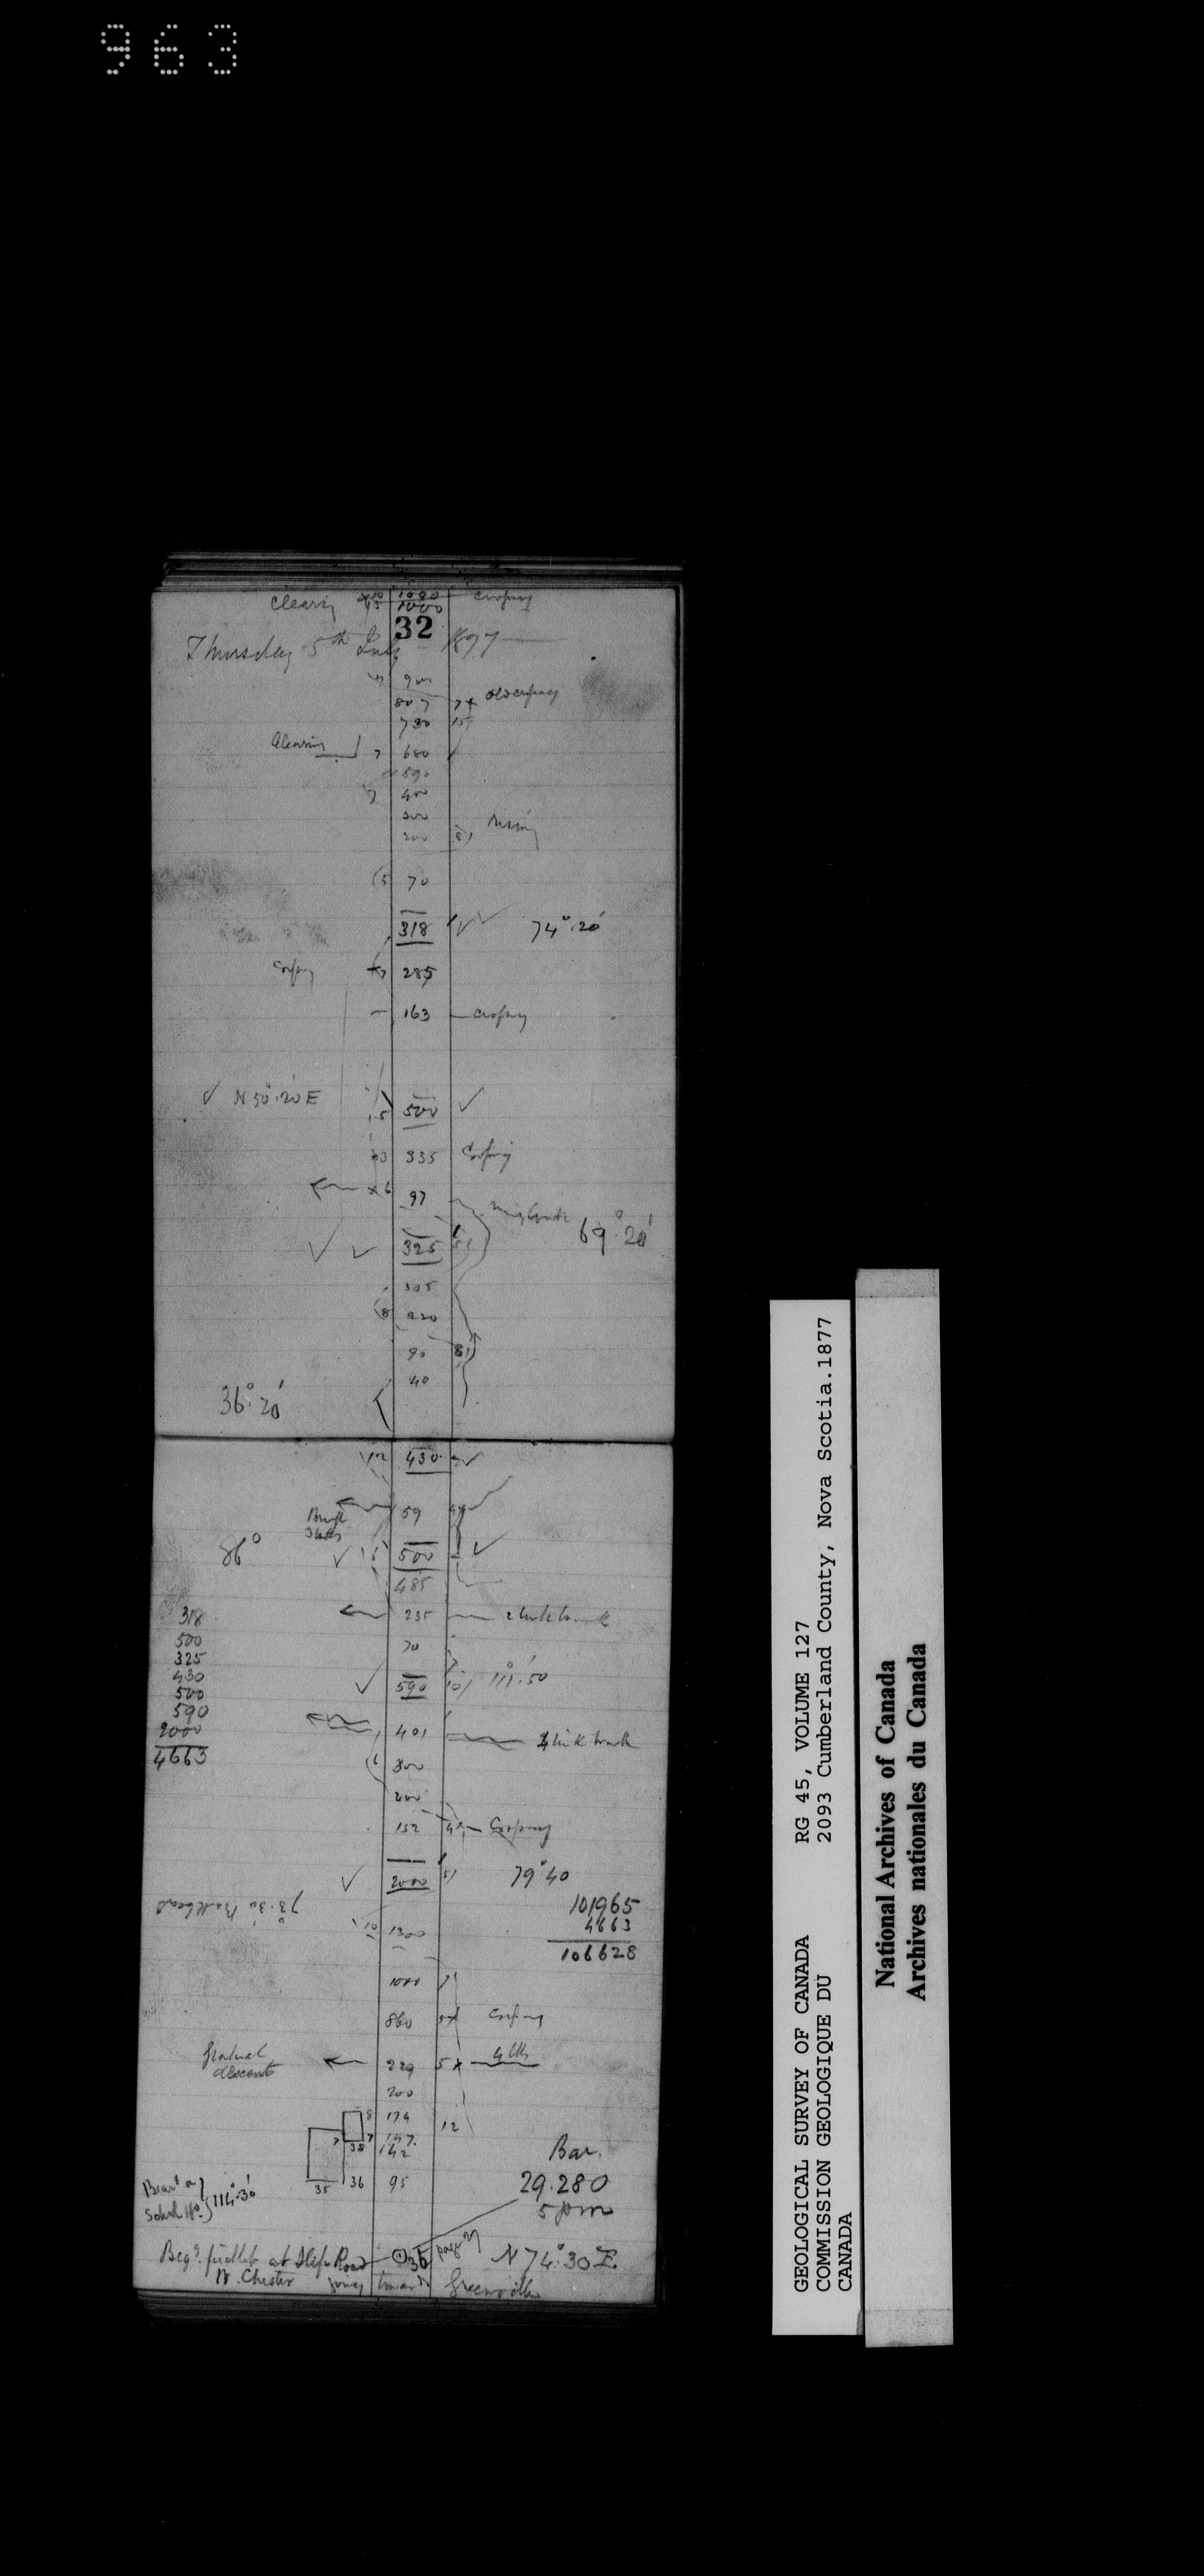 963
Clearing 1000
32
Thursday 5th July 1877
900
807 7x Old cropping
730 15
Clearing 7 680
590
7 400
300
200 8 rising
5 70
318 74°.20'
285
163 cropping
N 50°.20' E 5 500
335 Cropping
x 6 97
69°.20'
325 5
305
8 220
90 8
40
36°.20'
12 430
59
86° 6 500
485
318
235
500
70
325
430
590 10 111°.50'
500
590
401
2000
4663
6 300
200
152 Cropping
2000 5 79°40
73°.30'
101965
10 1300
4663
106628
1000 7
860 Cropping
Gradual descent
229 5 x 4 lks
200
8 174
12
7 7 147
38 142
Bar.
35 36 95
29.280
114°.30'
5 pm
at Slip Road 35 page 27 N 74°.30' E.
W. Chester going towards Greenville
GEOLOGICAL SURVEY OF CANADA RG 45, VOLUME 127
COMMISSION GEOLOGIQUE DU 2093 Cumberland County, Nova Scotia.1877
CANADA
National Archives of Canada
Archives nationales du Canada